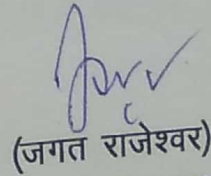 (जगत राजेश्वर)